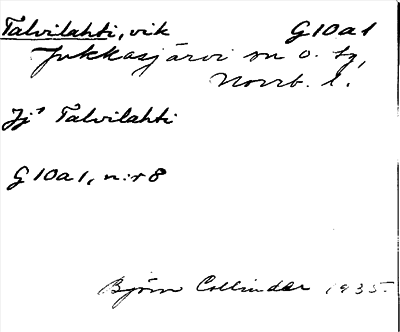 Talvilahti, vik G10a1
Jukkasjärvi sn o. tg,
Norrb. l.
Jj³ Talvilahti
G10a1, n:r 8
Björn Collinder 1935.